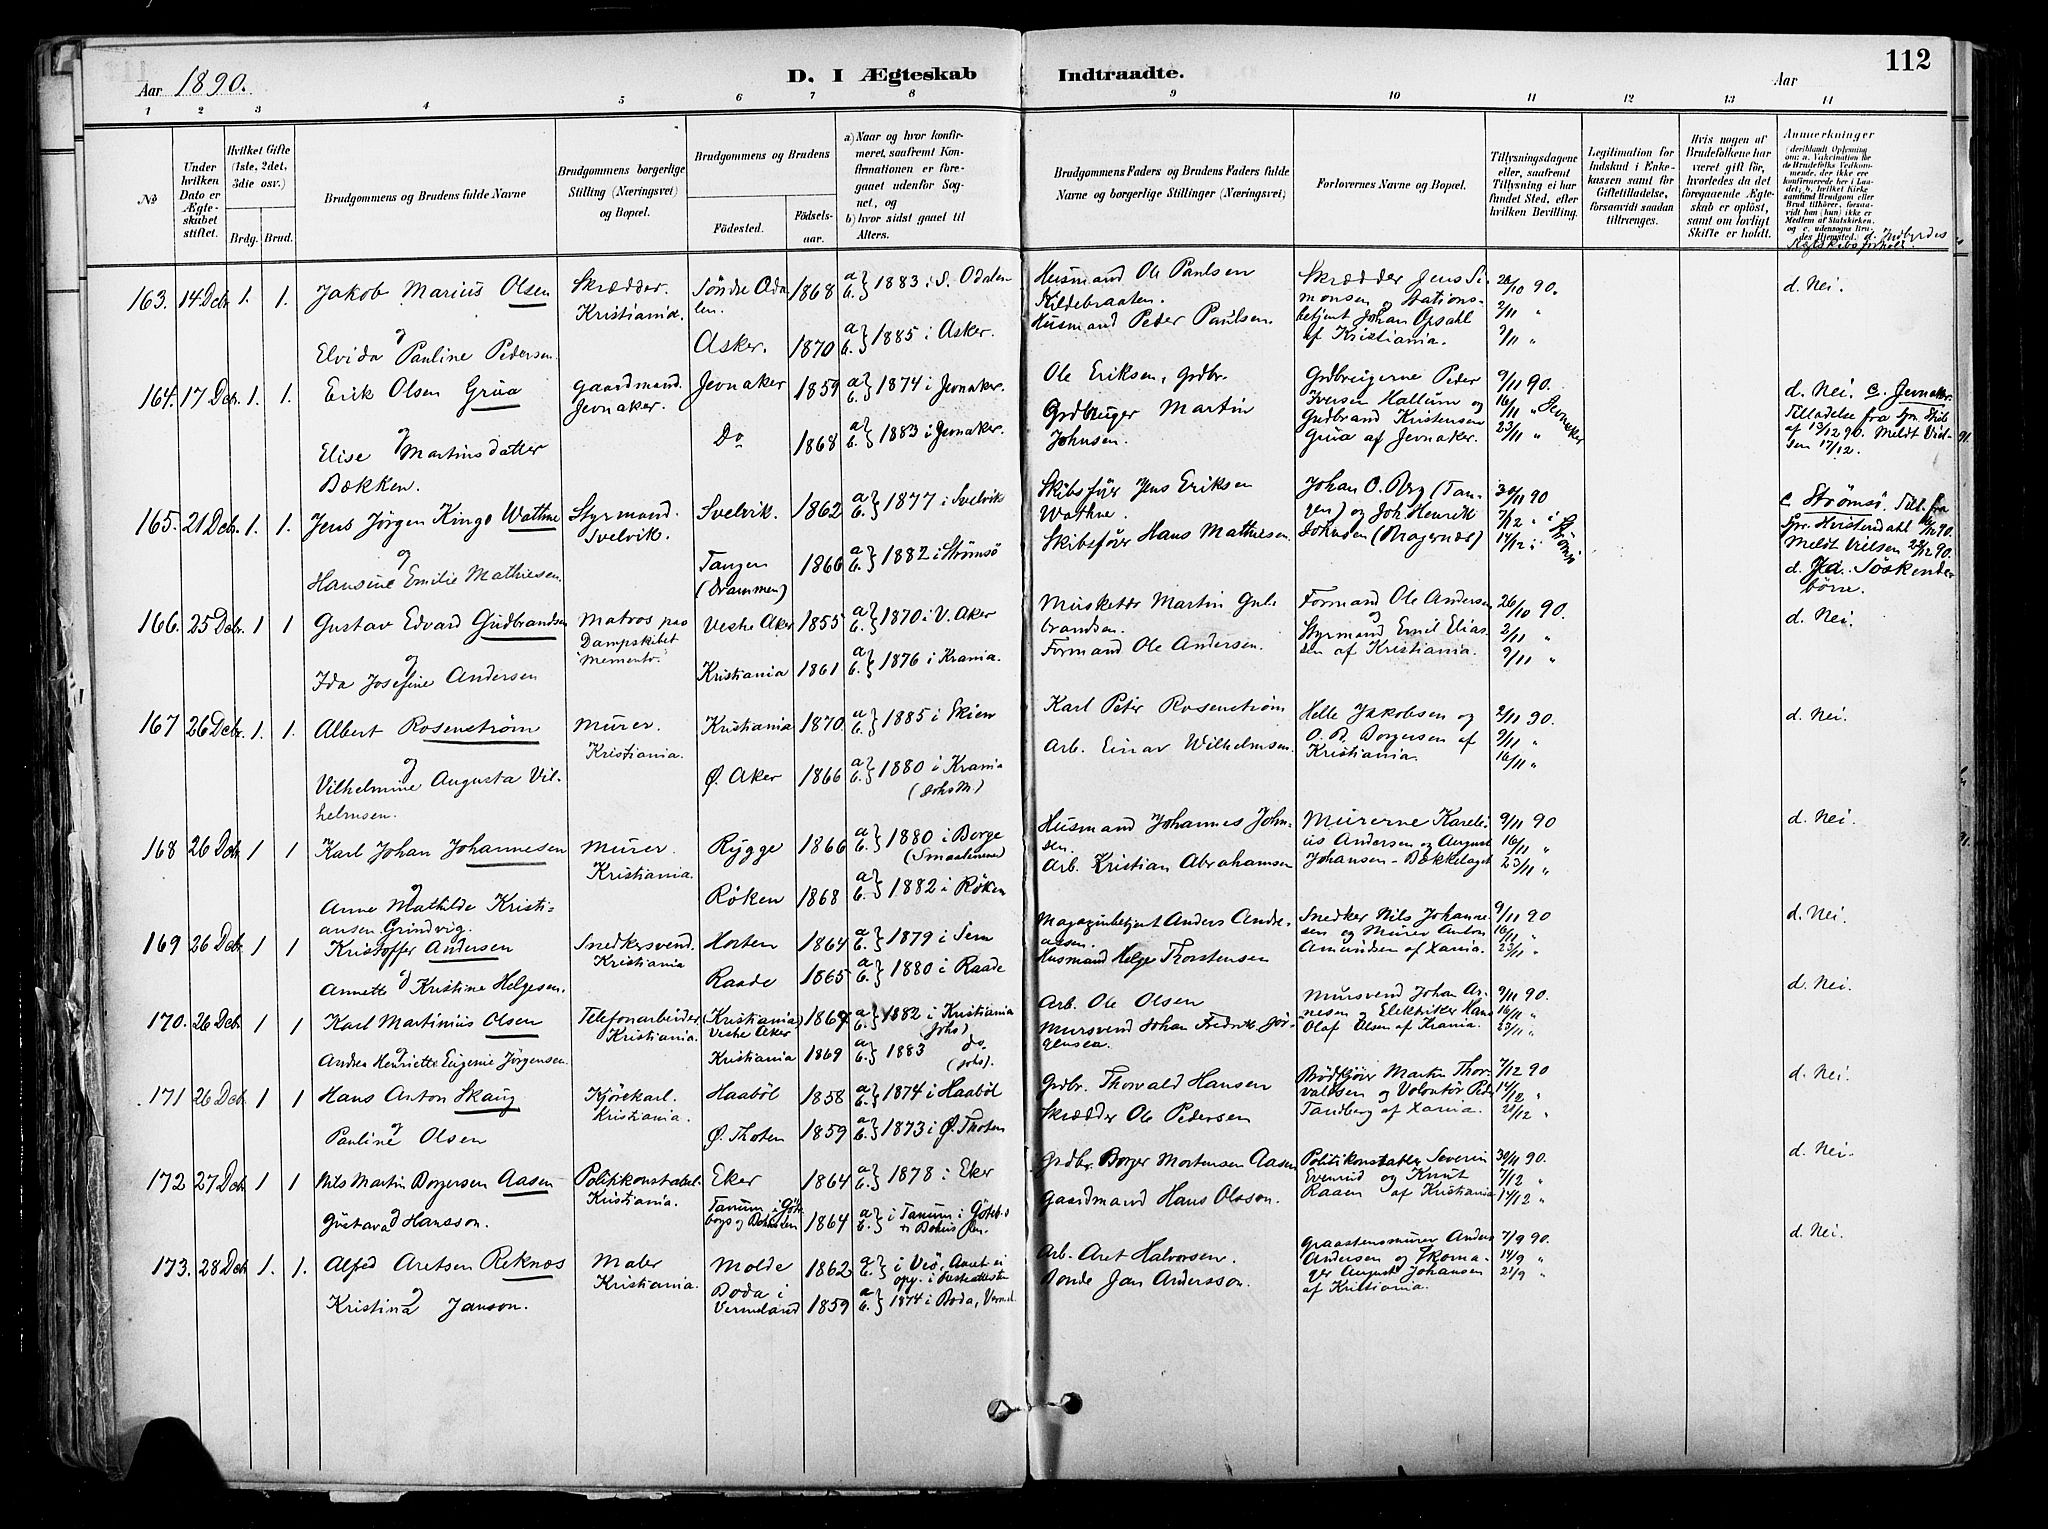 112
Aar 1890.
D. I Ægteskab Indtraadte.
Aar
1 2 3 4 5 6 7 8 9 10 11 12 13 14
No
Under hvilken Dato er Ægteskabet stiftet.
Hvilket Gifte (1ste, 2det, 3die osv.)
Brdg. Brud.
Brudgommens og Brudens fulde Navne
Brudgommens borgerlige Stilling (Næringsvei) og Bopæl.
Brudgommens og Brudens
Födested. Födselsaar.
a) Naar og hvor konfirmeret, saafremt Konfirmationen er foregaaet udenfor Sognet, og
b) hvor sidst gaaet til Alters.
Brudgommens Faders og Brudens Faders fulde Navne og borgerlige Stillinger (Næringsvei)
Forlovernes Navne og Bopæl.
Tillysningsdagene eller, saafremt Tillysning ei har fundet Sted, efter hvilken Bevilling.
Legitimation for Indskud i Enkekassen samt for Giftetilladelse, forsaavidt saadan tiltrænges.
Hvis nogen af Brudefolkene har været gift før, hvorledes da det foregaaende Ægteskab er opløst, samt om lovligt Skifte er holdt.
Anmerkninger
d. Indbyrdes Slegtskabsforhold.
163. 14 Dcbr 1. 1. Jakob Marius Olsen Skrædder. Kristiania. Søndre Odalen. 1868 a b } 1883 i S. Odalen Husmand Ole Paulsen Kildebraaten. Skrædder Jens Simonsen og Stationsbetjent Johan Opsahl af Kristiania. 26/10 90. 2/11 " 9/11 " d. Nei.
og Elvida Pauline Pedersen Asker. 1870 a b } 1885 i Asker. Husmand Peder Paulsen.
164. 17 Dcbr. 1. 1. Erik Olsen Grua gaardmand. Jevnaker. Jevnaker 1859 a b } 1874 i Jevnaker. Ole Eriksen, Grdbr. Grdbrugerne Peder Iversen Hallum og Gudbrand Kristensen Grua af Jevnaker. 9/11 90. 16/11 " 23/11 " Jevnaker d. Nei. c. Jevnaker. Tilladelse fra af 13/12 90. Meldt 17/12.
og Elise Martinsdatter Bækken. Do 1868 a b } 1883 i Jevnaker. Grdbruger Martin Johnsen.
165. 21 Dcbr. 1. 1. Jens Jörgen Kingo Wathne Styrmand. Svelvik. Svelvik. 1862 a b } 1877 i Svelvik Skibsfører Jens Eriksen Wathne. Johan O. Berg (Tangen) og Joh. Henrik Johnsen (Bragernæs) 30/11 90 7/12 " 14/12 " i Strømsö c Strømsö. Till. fra
og Hansine Emilie Mathiesen. Tangen (Drammen) 1866 a b } 1882 i Strømsö Skibsfører Hans Mathiesen. d. Ja. Söskendebörn.
166. 25 Dcbr. 1 1 Gustav Edvard Gudbrandsen Matros paa Dampskibet "Memento". Vestre Aker 1855 a b } 1870 i V. Aker Musketér Martin Gulbrandsen. Formand Ole Andersen og Styrmand Emil Eliassen af Kristiania. 26/10 90. 2/11 " 9/11 " d. Nei.
og Ida Josefine Andersen Kristiania 1861 a b } 1876 i Krania. Formand Ole Andersen.
167 26 Dcbr. 1. 1. Albert Rosenstrøm Murer. Kristiania. Kristiania 1870. a b } 1885 i Skien Karl Peter Rosenstrøm Helle Jakobsen og O. B. Borgersen af Kristiania. 2/11 90. 9/11 " 16/11 " d. Nei.
og Vilhelmine Augusta Vilhelmsen. Ø. Aker 1866 a b } 1880 i Krania (Johs M.) Arb. Einar Wilhelmsen.
168 26 Dcbr. 1 1 Karl Johan Johannesen Murer. Kristiania. Rygge 1866 a b } 1880 i Borge Husmand Johannes Johnsen. Murerne Karelius Andersen og August Johansen - Bækkelaget 9/11 90 16/11 " 23/11 " d. Nei.
og Anne Mathilde Kristiansen Grindvig. Röken 1868 a b } 1882 i Röken Arb. Kristian Abrahamsen
169 26 Dcbr 1 1 Kristoffer Andersen Snedkersvend. Kristiania Horten 1864 a b } 1879 i Sem Magazinbetjent Anders Andreassen. Snedker Nils Johannesen og Murer Anton Amundsen af Xania. 9/11 90 16/11 " 23/11 " d. Nei.
og Annette Kristine Helgesen. Raade 1865 a b } 1880 i Raade Husmand Helge Thorstensen
170. 26 Dcbr. 1 1 Karl Martinius Olsen Telefonarbeider Kristiania. (Kristiania) Vestre Aker 1864 a b } 1882 i Kristiania (Johs) Arb. Ole Olsen Mursvend Johan Arnesen og Elektriker Hans Olaf Olsen af Krania. 9/11 90. 16/11 " 23/11 " d. Nei.
og Andrea Henriette Eugenie Jørgensen. Kristiania 1869 a b } 1883 do (Johs). Mursvend Johan Fredrik Jørgensen.
171 26 Dcbr. 1 1 Hans Anton Skaug Kjørekarl. Kristiania. Haabøl 1858 a b } 1874 i Haabøl Grdbr. Thorvald Hansen Brødkjører Martin Thorvaldsen og Volontør Peder Tandberg af Xania. 7/12 90 14/12 " 21/12 " d. Nei.
og Pauline Olsen Ø. Thoten 1859 a b } 1873 i Ø. Thoten Skrædder Ole Pedersen
172 27 Dcbr 1 1 Nils Martin Borgersen Aasen Politikonstabel. Kristiania. Eker 1864 a b } 1878 i Eker Grdbr. Borger Mortensen Aasen Politikonstabler Severin Evenrud og Knut Raaen af Kristiania 30/11 90. 7/12 " 14/12 " d. Nei.
og Gustava Hansson. Tanum i Götebrgs og Bohuslen 1864 a b } i Tanum i Götebs & Bohus len. Gaardmand Hans Olsson.
173. 28 Dcbr 1. 1. Alfred Aretsen Reknæs Maler Kristiania. Molde 1862 a b } i Veö, Aaret ei opg. i Arb. Aret Halvorsen. Graastensmurer Anders Andersen og Skomager August Johansen af Kristiania. 7/9 90. 14/9 " 21/9 " d. Nei.
og Kristina Janson. Boda i Vermeland 1859 a b } 1874 i Boda, Verml. Bonde Jan Andersson.